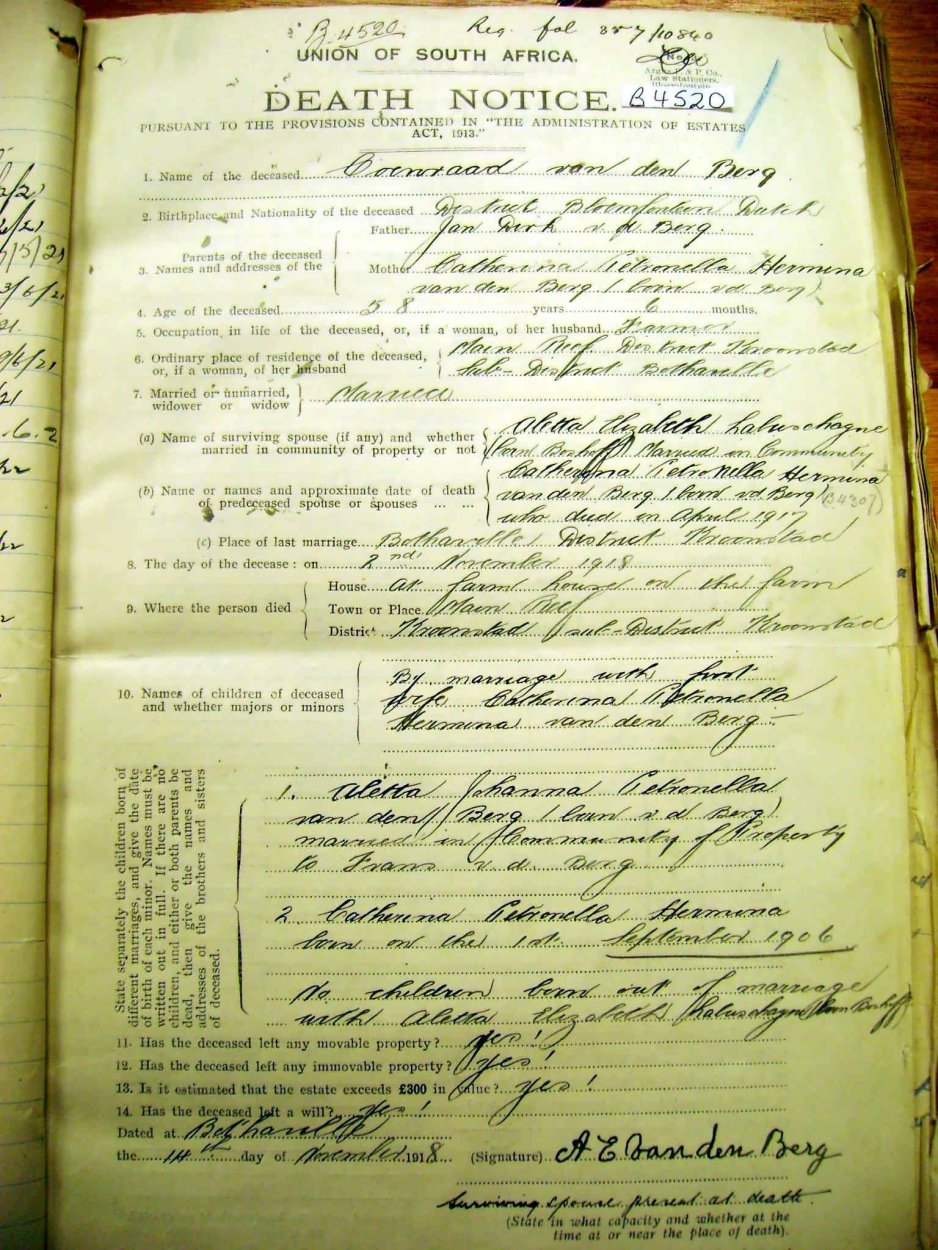 B.4520
Reg. fol 357/10840
UNION OF SOUTH AFRICA.
Argus P. & P. Co.,
Law Stationers,
Bloemfontein
DEATH NOTICE.
B4520
PURSUANT TO THE PROVISIONS CONTAINED IN "THE ADMINISTRATION OF ESTATES
ACT, 1913."
1. Name of the deceased Coenraad van den Berg
2. Birthplace and Nationality of the deceased District Bloemfontein Dutch
Father Jan Dirk v. d. Berg.
Parents of the deceased
3. Names and addresses of the
Mother Catherina Petronella Hermina
van den Berg (born v d Berg)
4. Age of the deceased 38 years 6 months.
5. Occupation in life of the deceased, or, if a woman, of her husband Farmer
6. Ordinary place of residence of the deceased, or, if a woman, of her husband
Main Reef District Kroonstad
Sub-District Bothaville
7. Married or unmarried, widower or widow Married
(a) Name of surviving spouse (if any) and whether married in community of property or not
Aletta Elizabeth Labuschagne
(born Boshoff) Married in Community
(b) Name or names and approximate date of death of predeceased spouse or spouses ... ...
Catherina Petronella Hermina
van den Berg (born v d Berg)
(B4307)
who died in April 1917
(c) Place of last marriage Bothaville District Kroonstad
8. The day of the decease: on 2nd November 1918
9. Where the person died
House At farm house on the farm
Town or Place Main Reef
District Kroonstad sub-District Kroonstad
10. Names of children of deceased and whether majors or minors
By marriage with first
wife Catherina Petronella
Hermina van den Berg -
State separately the children born of
different marriages, and give the date
of birth of each minor. Names must be
written out in full. If there are no
children, and either or both parents be
dead, then give the names and
addresses of the brothers and sisters
of deceased.
1. Aletta Johanna Petronella
van den Berg (born v d Berg)
married in Community of Property
to Frans v. d. Berg
2 Catherina Petronella Hermina
born on the 1st September 1906
No children born out of marriage
with Aletta Elizabeth Labuschagne (born Boshoff)
11. Has the deceased left any movable property? yes!
12. Has the deceased left any immovable property? yes!
13. Is it estimated that the estate exceeds £300 in value? yes!
14. Has the deceased left a will? yes!
Dated at Bothaville
the 14th day of November 1918 (Signature) A E van den Berg
Surviving spouse present at death.
(State in what capacity and whether at the
time at or near the place of death).